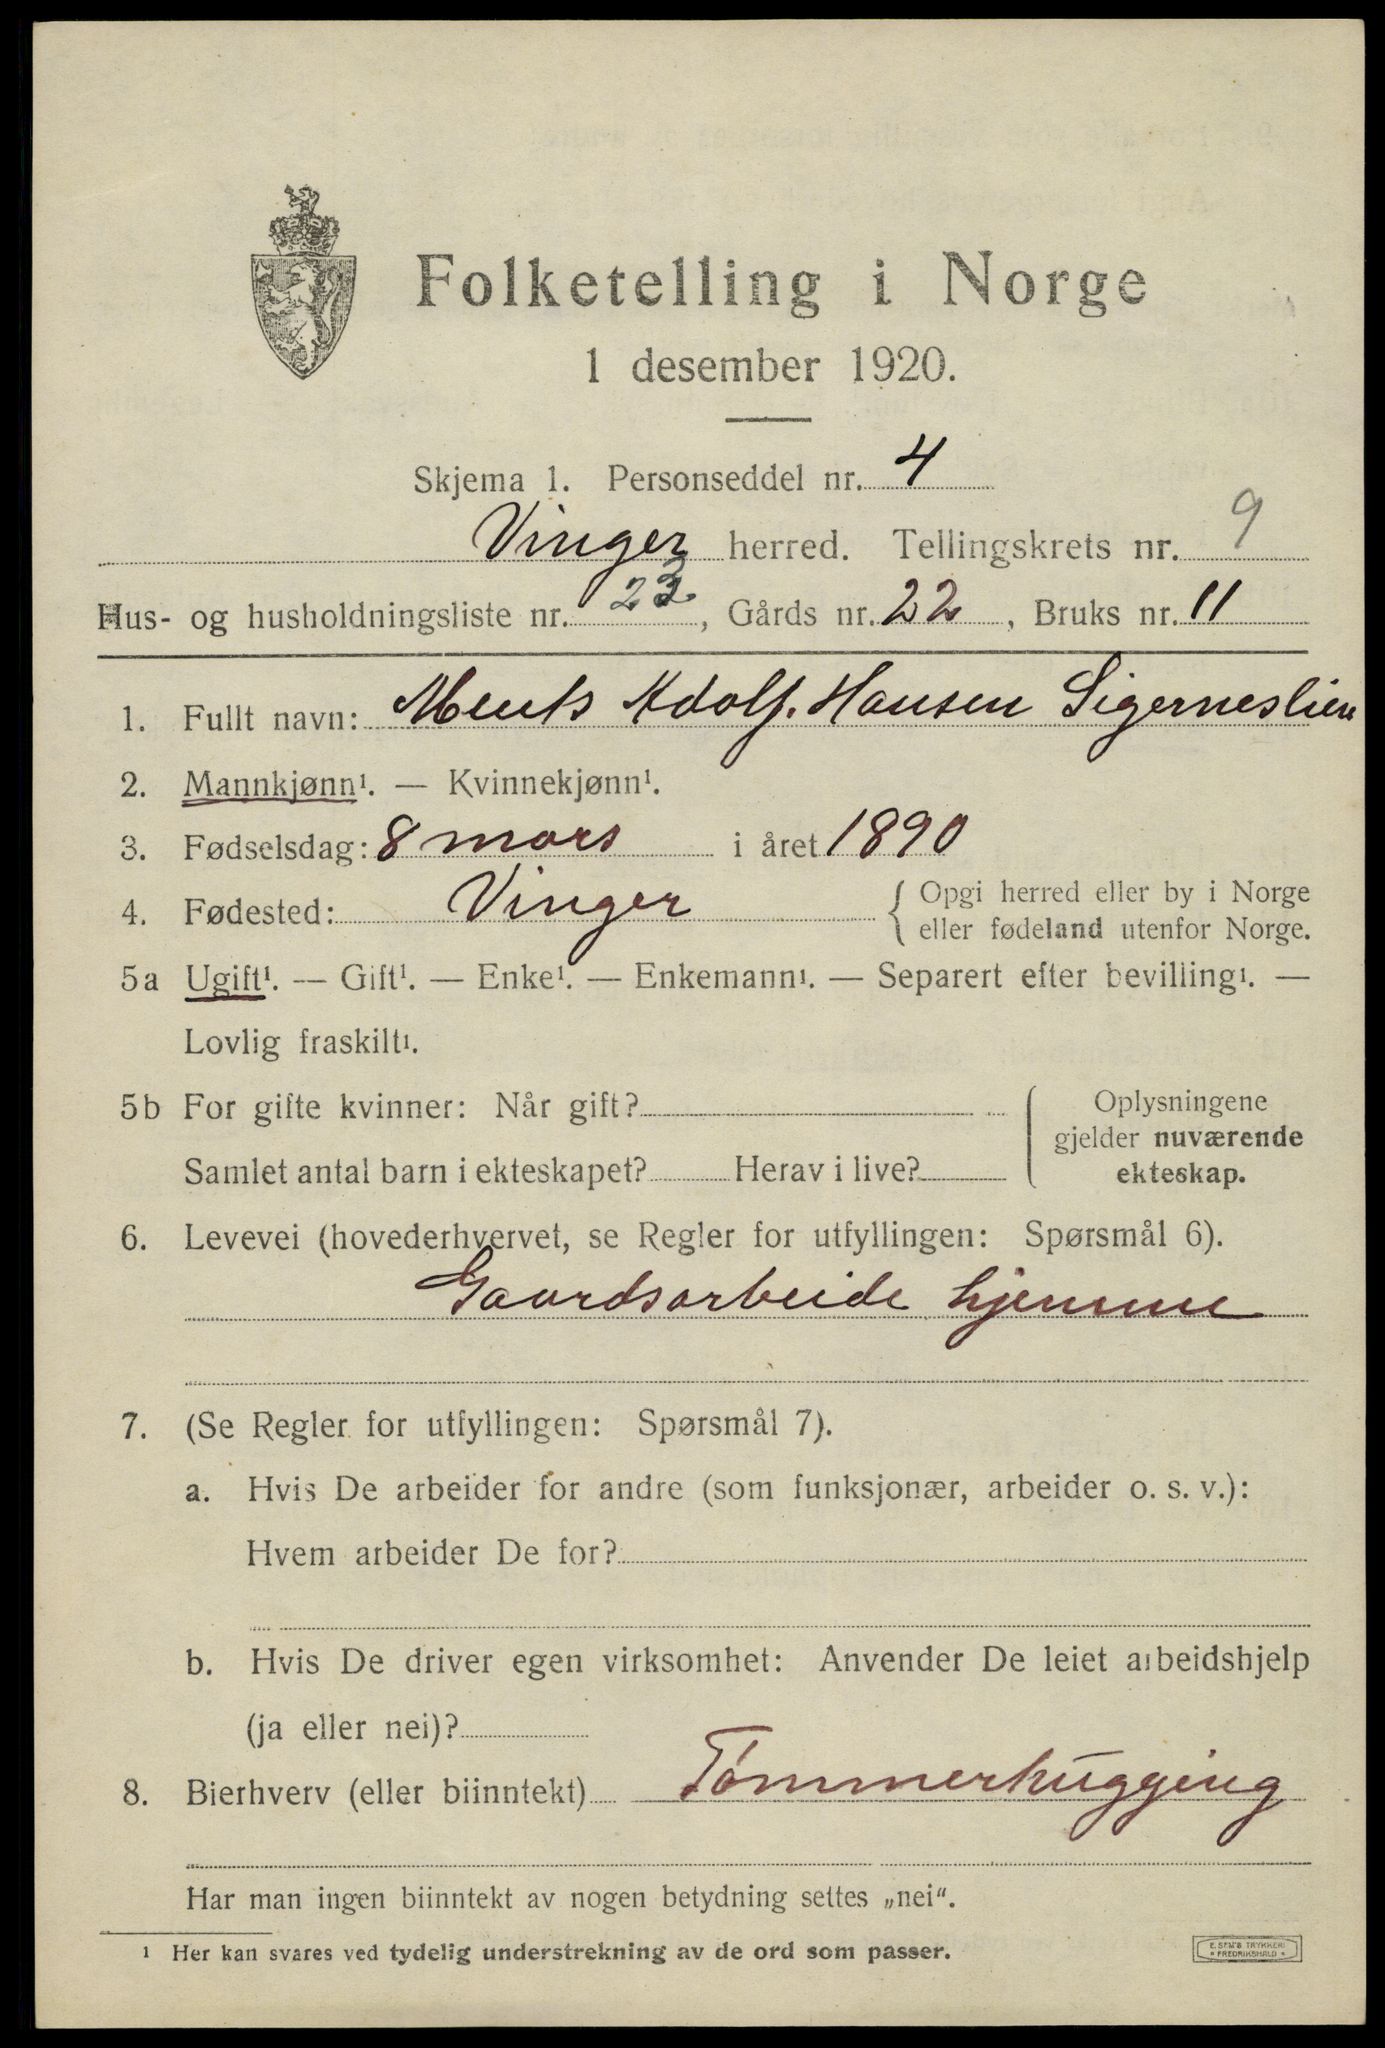 Folketelling i Norge
1 desember 1920.
Skjema 1. Personseddel nr. 4
Vinger herred. Tellingskrets nr. 9
Hus- og husholdningsliste nr. 23, Gårds nr. 22, Bruks nr. 11
1. Fullt navn: Ments Adolf. Hansen Sigerneslien
2. Mannkjønn¹. — Kvinnekjønn¹.
3. Fødselsdag: 8 mars i året 1890
4. Fødested: Vinger { Opgi herred eller by i Norge
eller fødeland utenfor Norge.
5a Ugift¹. — Gift¹. — Enke¹. — Enkemann¹. — Separert efter bevilling¹. —
Lovlig fraskilt¹.
5b For gifte kvinner: Når gift? Oplysningene
gjelder nuværende
Samlet antal barn i ekteskapet? Herav i live? ekteskap.
6. Levevei (hovederhvervet, se Regler for utfyllingen: Spørsmål 6).
Gaardsarbeide hjemme
7. (Se Regler for utfyllingen: Spørsmål 7).
a. Hvis De arbeider for andre (som funksjonær, arbeider o. s. v.):
Hvem arbeider De for?
b. Hvis De driver egen virksomhet: Anvender De leiet arbeidshjelp
(ja eller nei)?
8. Bierhverv (eller biinntekt) Tømmerhugging
Har man ingen biinntekt av nogen betydning settes „nei“.
¹ Her kan svares ved tydelig understrekning av de ord som passer.
E. SEM'S TRYKKERI
FREDRIKSHALD